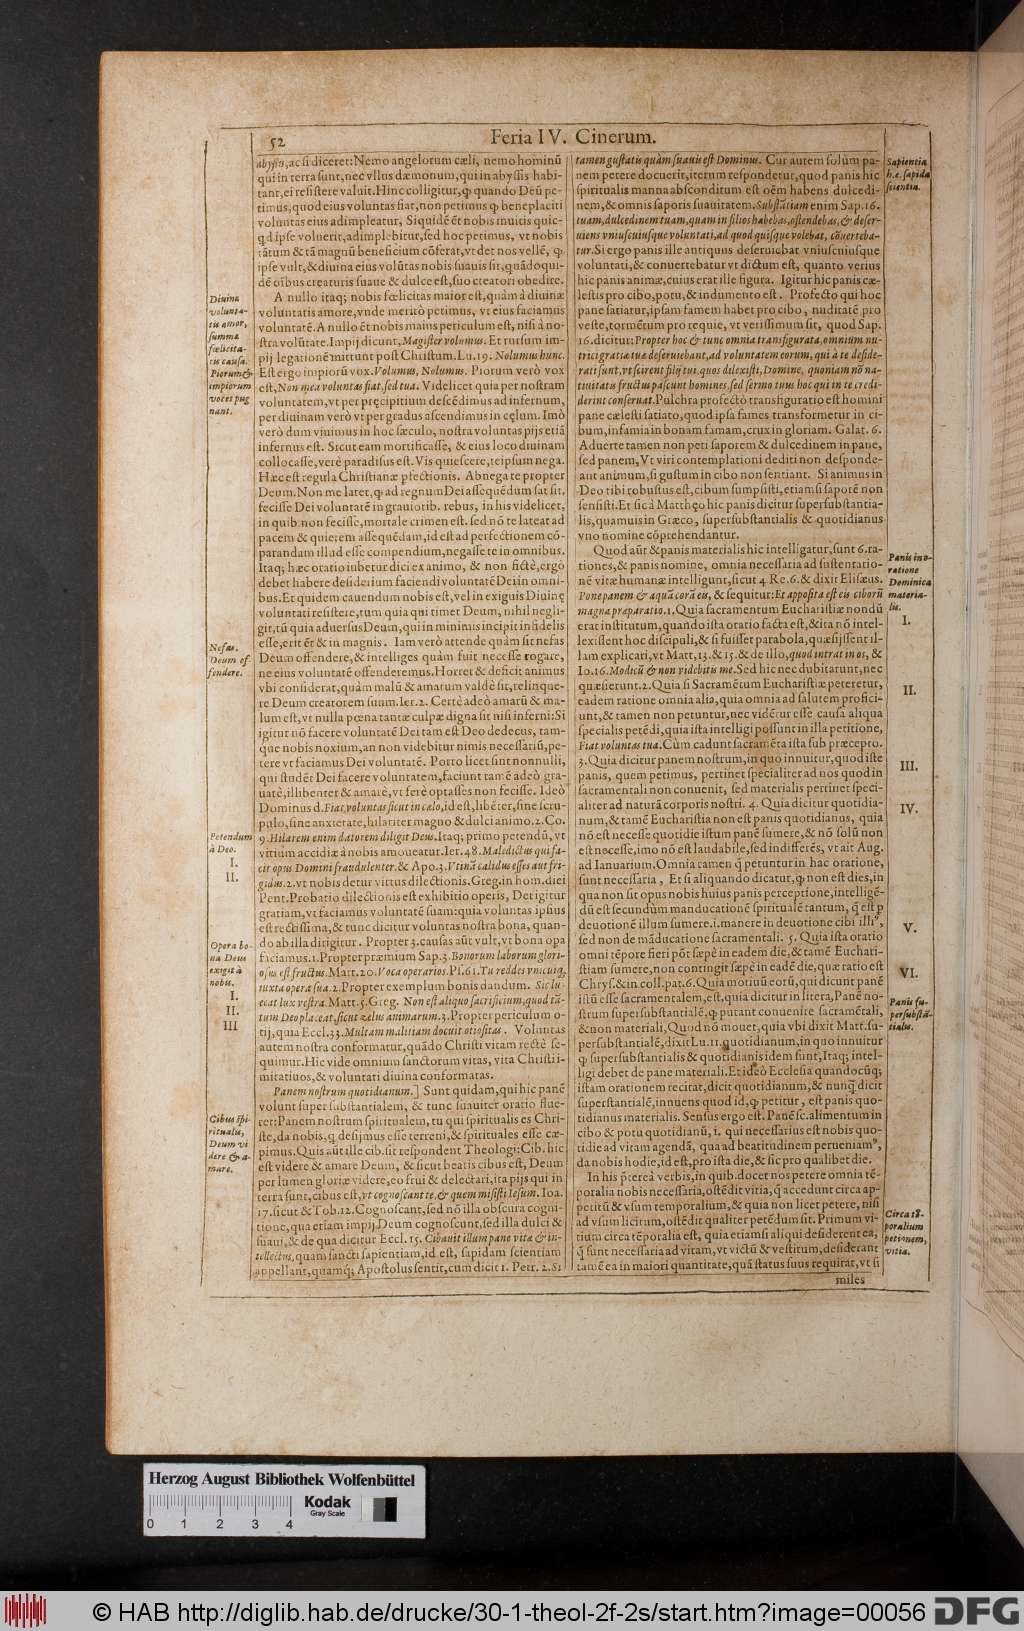 52
Feria IV. Cinerum.
abyssis, ac si diceret: Nemo angelorum cæli, nemo hominũ
qui in terra sunt, nec vllus dæmonum, qui in abyssis habi-
tant, ei resistere valuit. Hinc colligitur, ꝙ quando Deũ pe-
timus, quod eius voluntas fiat, non petimus ꝙ beneplaciti
voluntas eius adimpleatur, Siquidẽ ẽt nobis inuitis quic-
qd ipse voluerit, adimplebitur, sed hoc petimus, vt nobis
tãtum & tã magnũ beneficium cõferat, vt det nos vellẽ, ꝙ
ipse vult, & diuina eius volũtas nobis suauis sit, quãdoqui-
dẽ oĩbus creaturis suaue & dulce est, suo creatori obedire.
A nullo itaq; nobis fœlicitas maior est, quàm à diuinæ
voluntatis amore, vnde meritò petimus, vt eius faciamus
voluntatẽ. A nullo ẽt nobis maius periculum est, nisi à no-
stra volũtate. Impij dicunt, Magister volumus. Et rursum im-
pij legationẽ mittunt post Christum. Lu. 19. Nolumus hunc.
Est ergo impiorũ vox. Volumus, Nolumus. Piorum verò vox
est, Non mea voluntas fiat, sed tua. Videlicet quia per nostram
voluntatem, vt per pręcipitium descẽdimus ad infernum,
per diuinam verò vt per gradus ascendimus in cęlum. Imò
verò dum viuimus in hoc sæculo, nostra voluntas pijs etiã
infernus est. Sicut eam mortificasse, & eius loco diuinam
collocasse, verè paradisus est. Vis quiescere, teipsum nega.
Hæc est regula Christianæ pfectionis. Abnega te propter
Deum. Non me latet, ꝙ ad regnum Dei assequẽdum sat sit,
fecisse Dei voluntatẽ in grauiorib. rebus, in his videlicet,
in quib. non fecisse, mortale crimen est. sed nõ te lateat ad
pacem & quietem assequẽdam, id est ad perfectionem cõ-
parandam illad esse compendium, negasse te in omnibus.
Itaq; hæc oratio iubetur dici ex animo, & non fictè, ergò
debet habere desiderium faciendi voluntatẽ Dei in omni-
bus. Et quidem cauendum nobis est, vel in exiguis Diuinę
voluntati resistere, tum quia qui timet Deum, nihil negli-
git, tũ quia aduersus Deum, qui in minimis incipit infidelis
esse, erit ẽt & in magnis. Iam verò attende quàm sit nefas
Deum offendere, & intelliges quàm fuit necesse rogare,
ne eius voluntatẽ offenderemus. Horret & deficit animus
vbi considerat, quàm malũ & amarum valdè sit, relinque-
re Deum creatorem suum. Ier. 2. Certè adeò amarũ & ma-
lum est, vt nulla pœna tantæ culpæ digna sit nisi inferni: Si
igitur nõ facere voluntatẽ Dei tam est Deo dedecus, tam-
que nobis noxium, an non videbitur nimis necessariũ, pe-
tere vt faciamus Dei voluntatẽ. Porro licet sint nonnulli,
qui studẽt Dei facere voluntatem, faciunt tamẽ adeò gra-
uatè, illibenter & amarè, vt ferè optasses non fecisse. Ideò
Dominus d. Fiat voluntas sicut in cælo, id est, libẽter, sine scru-
pulo, sine anxietate, hilariter magno & dulci animo. 2. Co.
9. Hilarem enim datorem diligit Deus. Itaq; primo petendũ, vt
vitium accidiæ à nobis amoueatur. Ier. 48. Maledictus qui fa-
cit opus Domini fraudulenter. & Apo. 3. Vtinã calidus esses aut fri-
gidus. 2. vt nobis detur virtus dilectionis. Greg. in hom. diei
Pent. Probatio dilectionis est exhibitio operis, Det igitur
gratiam, vt faciamus voluntatẽ suam: quia voluntas ipsius
est rectissima, & tunc dicitur voluntas nostra bona, quan-
do ab illa dirigitur. Propter 3. causas aũt vult, vt bona opa
faciamus. 1. Propter præmium Sap. 3. Bonorum laborum glori-
osus est fructus. Matt. 20. Voca operarios. Ps. 61. Tu reddes vnicuiq;
iuxta opera sua. 2. Propter exemplum bonis dandum. Sic lu-
ceat lux vestra. Matt. 5. Greg. Non est aliquo sacrificium, quod tã-
tum Deo placeat, sicut zelus animarum. 3. Propter periculum o-
tij, quia Eccl. 33. Multam malitiam docuit otiositas. Voluntas
autem nostra conformatur, quãdo Christi vitam rectè se-
quimur. Hic vide omnium sanctorum vitas, vita Christi i-
mitatiuos, & voluntati diuina conformatas.
Panem nostrum quotidianum.] Sunt quidam, qui hic panẽ
volunt supersubstantialem, & tunc suauiter oratio flue-
ret: Panem nostrum spiritualem, tu qui spiritualis es Chri-
ste, da nobis, ꝙ desijmus esse terreni, & spirituales esse cœ-
pimus. Quis aũt ille cib. sit respondent Theologi: Cib. hic
est videre & amare Deum, & sicut beatis cibus est, Deum
per lumen gloriæ videre, eo frui & delectari, ita pijs qui in
terra sunt, cibus est, vt cognoscant te, & quem misisti Iesum. Ioa.
17. sicut & Tob. 12. Cognoscant, sed nõ illa obscura cogni-
tione, qua etiam impij Deum cognoscunt, sed illa dulci &
suaui, & de qua dicitur Eccl. 15. Cibauit illum pane vitæ & in-
tellectus, quam sancti sapientiam, id est, sapidam scientiam
appellant, quamq; Apostolus sentit, cum dicit 1. Petr. 2. Si
tamen gustatis quàm suauis est Dominus. Cur autem solùm pa-
nem petere docuerit, iterum respondetur, quod panis hic
spiritualis manna absconditum est oẽm habens dulcedi-
nem, & omnis saporis suauitatem. Substãtiam enim Sap. 16.
tuam, dulcedinem tuam, quam in filios habebas, ostendebas, & deser-
uiens vniuscuiusque voluntati, ad quod quisque volebat, cõuerteba-
tur. Si ergo panis ille antiquus deseruiebat vniuscuiusque
voluntati, & conuertebatur vt dictum est, quanto verius
hic panis animæ, cuius erat ille figura. Igitur hic panis cæ-
lestis pro cibo, potu, & indumento est. Profecto qui hoc
pane satiatur, ipsam famem habet pro cibo, nuditatẽ pro
veste, tormẽtum pro requie, vt verissimum sit, quod Sap.
16. dicitur: Propter hoc & tunc omnia transfigurata, omnium nu-
trici gratiæ tuæ deseruiebant, ad voluntatem eorum, qui à te deside-
rati sunt, vt scirent filij tui, quos dilexisti, Domine, quoniam nõ na-
tiuitatis fructus pascunt homines, sed sermo tuus hoc qui in te credi-
derint conseruat. Pulchra profectò transfiguratio est homini
pane cælesti satiato, quod ipsa fames transformetur in ci-
bum, infamia in bonam famam, crux in gloriam. Galat. 6.
Aduerte tamen non peti saporem & dulcedinem in pane,
sed panem, Vt viri contemplationi dediti non desponde-
ant animum, si gustum in cibo non sentiant. Si animus in
Deo tibi robustus est, cibum sumpsisti, etiamsi saporẽ non
sensisti. Et sic à Matthęo hic panis dicitur supersubstantia-
lis, quamuis in Græco, supersubstantialis & quotidianus
vno nomine cõprehendantur.
Quod aũt & panis materialis hic intelligatur, sunt 6. ra-
tiones, & panis nomine, omnia necessaria ad sustentatio-
nẽ vitæ humanæ intelligunt, sicut 4 Re. 6. & dixit Elisæus.
Pone panem & aquã corã eis, & sequitur: Et apposita est eis ciborũ
magna præparatio. 1. Quia sacramentum Eucharistiæ nondũ
erat institutum, quando ista oratio facta est, & ita nõ intel-
lexissent hoc discipuli, & si fuisset parabola, quæsijssent il-
lam explicari, vt Matt. 13. & 15. de illo, quod intrat in os, &
Io. 16. Modicũ & non videbitis me. Sed hic nec dubitarunt, nec
quæsierunt. 2. Quia si Sacramẽtum Eucharistiæ peteretur,
eadem ratione omnia alia, quia omnia ad salutem profici-
unt, & tamen non petuntur, nec vidẽtur esse causa aliqua
specialis petẽdi, quia ista intelligi possunt in illa petitione,
Fiat voluntas tua. Cùm cadunt sacramẽta ista sub præcepto.
3. Quia dicitur panem nostrum, in quo innuitur, quod iste
panis, quem petimus, pertinet specialiter ad nos quod in
sacramentali non conuenit, sed materialis pertinet speci-
aliter ad naturã corporis nostri. 4. Quia dicitur quotidia-
num, & tamẽ Eucharistia non est panis quotidianus, quia
nõ est necesse quotidie istum panẽ sumere, & nõ solũ non
est necesse, imo nõ est laudabile, sed indifferẽs, vt ait Aug.
ad Ianuarium. Omnia tamen q̃ petuntur in hac oratione,
sunt necessaria, Et si aliquando dicatur, ꝙ non est dies, in
qua non sit opus nobis huius panis perceptione, intelligẽ-
dũ est secundum manducationẽ spiritualẽ tantum, q̃ est p
deuotionẽ illum sumere. i. manere in deuotione cibi illiꝰ,
sed non de mãducatione sacramentali. 5. Quia ista oratio
omni tẽpore fieri põt sæpè in eadem die, & tamẽ Euchari-
stiam sumere, non contingit sæpè in eadẽ die, quæ ratio est
Chrys. & in coll. pat. 6. Quia motiuũ eorũ, qui dicunt panẽ
istũ esse sacramentalem, est, quia dicitur in litera, Panẽ no-
strum supersubstantialẽ, ꝙ putant conuenire sacramẽtali,
& non materiali, Quod nõ mouet, quia vbi dixit Matt. su-
persubstantialẽ, dixit Lu. 11. quotidianum, in quo innuitur
ꝙ supersubstantialis & quotidianis idem sunt, Itaq; intel-
ligi debet de pane materiali. Et ideò Ecclesia quandocũq;
istam orationem recitat, dicit quotidianum, & nunq̃ dicit
superstantialẽ, innuens quod id, ꝙ petitur, est panis quo-
tidianus materialis. Sensus ergo est. Panẽ sc. alimentum in
cibo & potu quotidianũ, i. qui necessarius est nobis quo-
tidie ad vitam agendã, qua ad beatitudinem perueniamꝰ,
da nobis hodie, id est, pro ista die, & sic pro qualibet die.
In his p̃tereà verbis, in quib. docet nos petere omnia tẽ-
poralia nobis necessaria, ostẽdit vitia, q̃ accedunt circa ap-
petitũ & vsum temporalium, & quia non licet petere, nisi
ad vsum licitum, ostẽdit qualiter petẽdum sit. Primum vi-
tium circa tẽporalia est, quia etiamsi aliqui desiderent ea,
q̃ sunt necessaria ad vitam, vt victũ & vestitum, desiderant
tamẽ ea in maiori quantitate, quã status suus requirat, vt si
miles
Diuina
volunta-
tis amor,
summa
fœlicita-
tis causa.
Piorum &
impiorum
voces pug
nant.
Nefas.
Deum of
fendere.
Petendum
à Deo.
I.
II.
Opera bo-
na Deus
exigit à
nobis.
I.
II.
III
Cibus spi-
ritualis,
Deum vi
dere & a-
mare.
Sapientia
h.e. sapida
scientia.
Panis in o-
ratione
Dominica
materia-
lis.
I.
II.
III.
IV.
V.
VI.
Panis su-
persubstã-
tialis.
Circa tẽ-
poralium
petitionem,
vitia.
Herzog August Bibliothek Wolfenbüttel
Kodak
Gray Scale
0 1 2 3 4
© HAB http://diglib.hab.de/drucke/30-1-theol-2f-2s/start.htm?image=00056
DFG